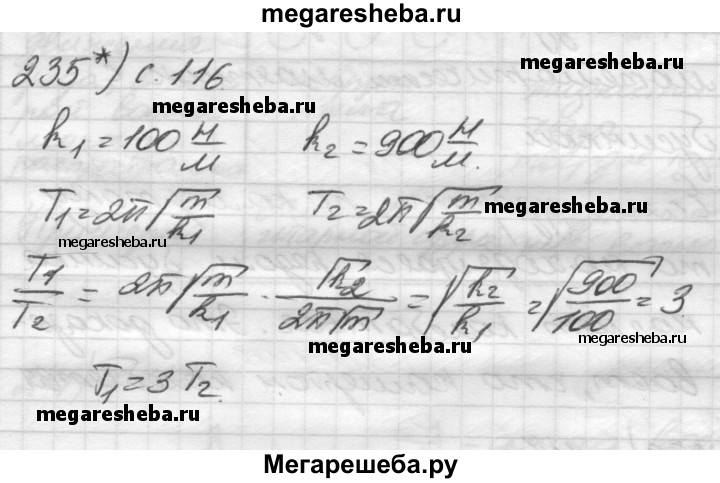 megaresheba.ru
235*) с. 116
megaresheba.ru
k₁ = 100 Н/м   k₂ = 900 Н/м.
T₁ = 2π√(m/k₁)   T₂ = 2π√(m/k₂)
megaresheba.ru
megaresheba.ru
T₁/T₂ = 2π√(m/k₁) · √k₂/(2π√m) = √(k₂/k₁) = √(900/100) = 3
megaresheba.ru
megaresheba.ru
T₁ = 3 T₂.
megaresheba.ru
Мегарешеба.ру